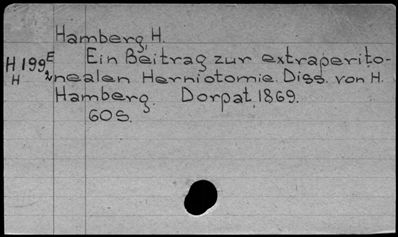 Hamberg, H.
H 199 E Ein Beitrag zur extraperito-
H 2 nealen Herniotomie. Diss. von H.
Hamberg. Dorpat, 1869.
60S.